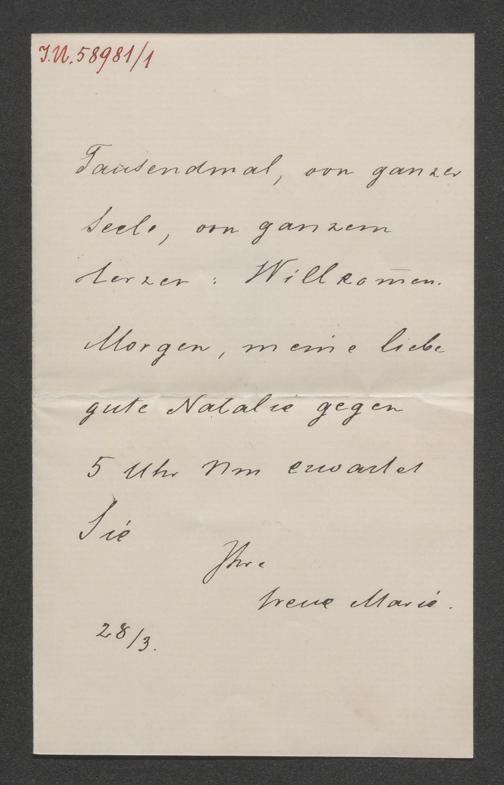 J.N. 58981/1
Tausendmal, von ganzer
Seele, von ganzem
Herzen : Willkom̅en.
Morgen, meine liebe
gute Natalie gegen
5 Uhr Nm erwartet
Sie
Ihre
treue Marie.
28/3.